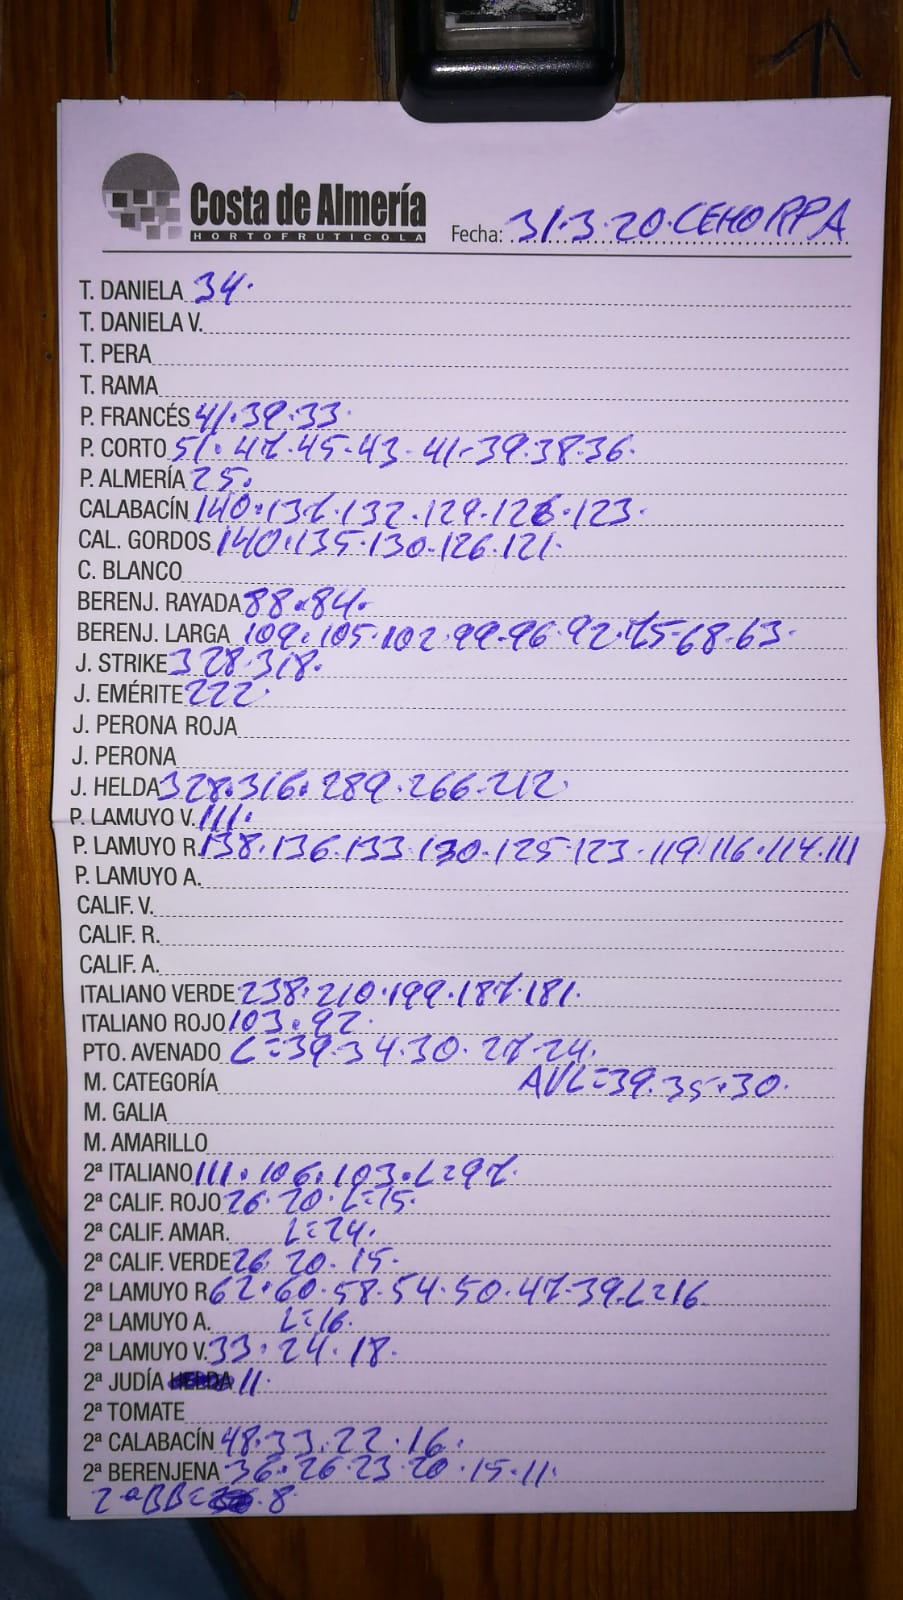 Costa de Almería
HORTOFRUTICOLA
Fecha: 31·3·20·CEHORPA
T. DANIELA 34·
T. DANIELA V.
T. PERA
T. RAMA
P. FRANCÉS 41·39·33·
P. CORTO 51·47·45·43·41·39·38·36·
P. ALMERÍA 25·
CALABACÍN 140·137·132·129·126·123·
CAL. GORDOS 140·135·130·126·121·
C. BLANCO
BERENJ. RAYADA 88·84·
BERENJ. LARGA 109·105·102·99·96·92·75·68·63·
J. STRIKE 328·318·
J. EMÉRITE 222·
J. PERONA ROJA
J. PERONA
J. HELDA 328·316·289·266·212·
P. LAMUYO V. 111·
P. LAMUYO R. 138·136·133·130·125·123·119·116·114·111
P. LAMUYO A.
CALIF. V.
CALIF. R.
CALIF. A.
ITALIANO VERDE 238·210·199·187·181·
ITALIANO ROJO 103·92·
PTO. AVENADO L=39·34·30·27·24·
M. CATEGORÍA AVL=39·35·30·
M. GALIA
M. AMARILLO
2ª ITALIANO 111·106·103·L=97·
2ª CALIF. ROJO 26·20·L=15·
2ª CALIF. AMAR. L=24·
2ª CALIF. VERDE 26·20·15·
2ª LAMUYO R 62·60·58·54·50·47·39·L=16
2ª LAMUYO A. L=16·
2ª LAMUYO V. 33·24·18·
2ª JUDÍA 11·
2ª TOMATE
2ª CALABACÍN 48·33·22·16·
2ª BERENJENA 36·26·23·20·15·11·
2ªBB= 8·